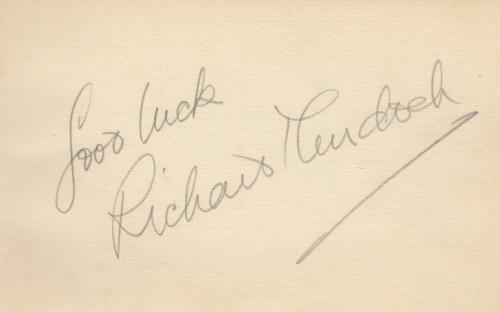 Good luck
Richard Murdoch